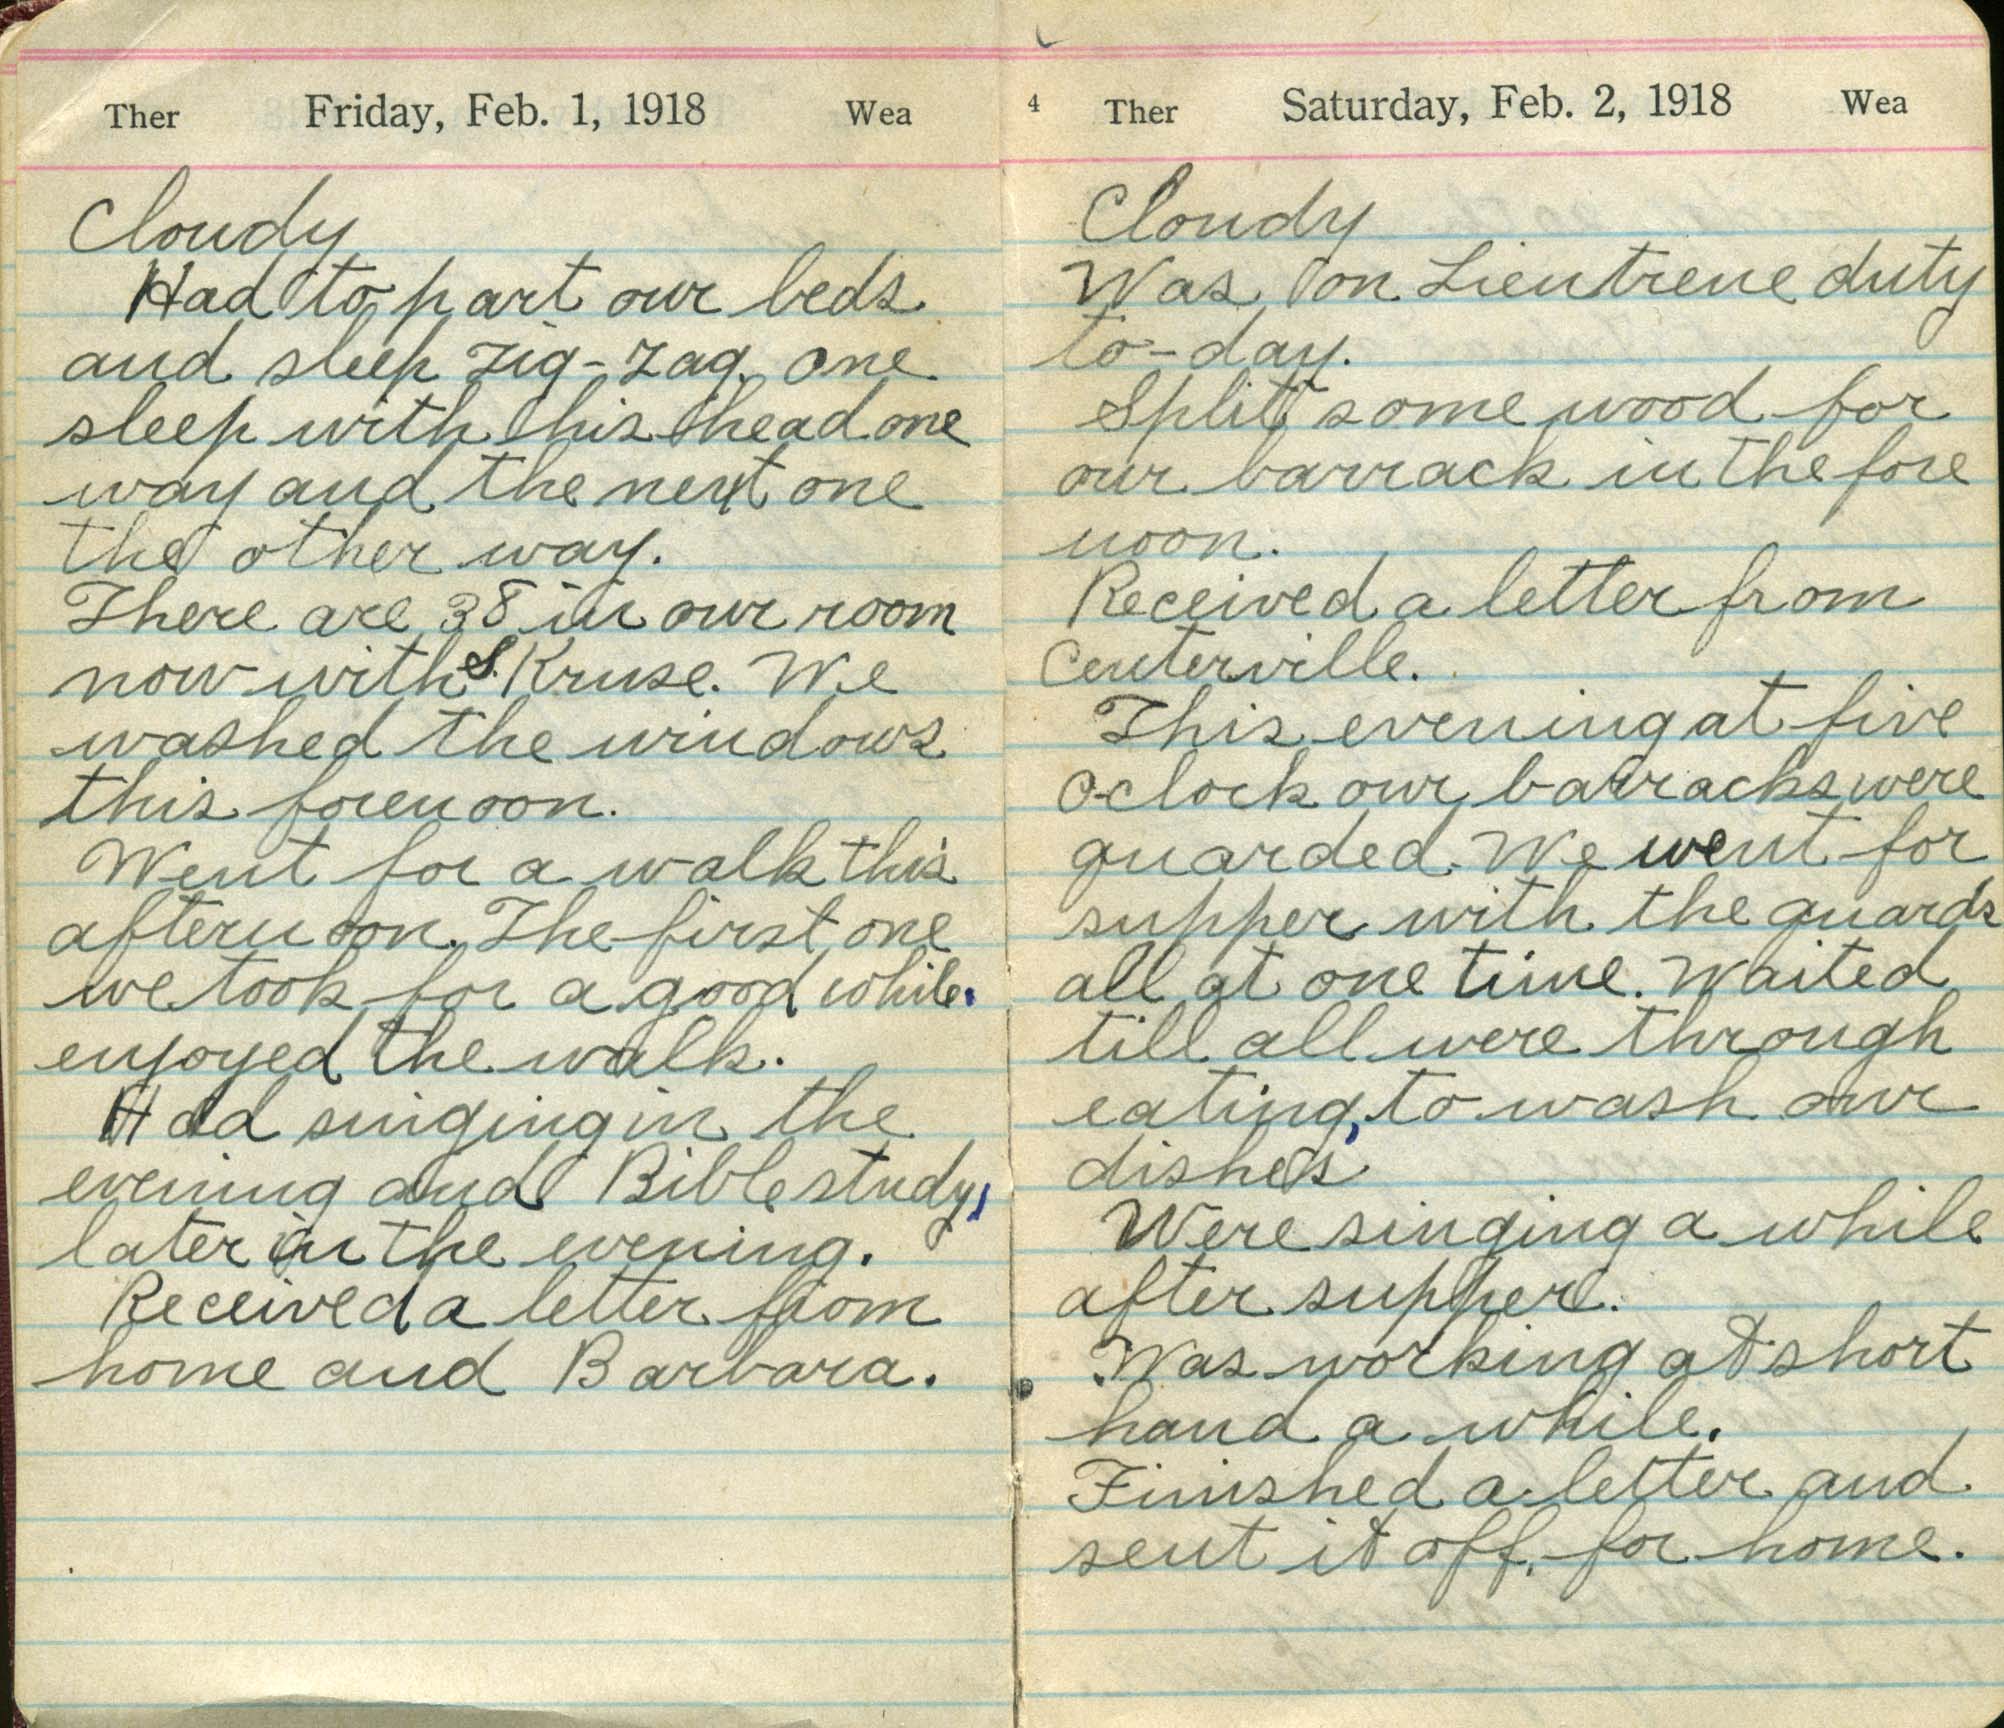 Ther Friday, Feb. 1, 1918 Wea
Cloudy
Had to part our beds
and sleep zig-zag. one
sleep with his head one
way and the next one
the other way.
There are 38 in our room
now with S. Kruse. We
washed the windows
this forenoon.
Went for a walk this
afternoon. The first one
we took for a good while.
enjoyed the walk.
Had singing in the
evening and Bible study,
later in the evening.
Received a letter from
home and Barbara.
4 Ther Saturday, Feb. 2, 1918 Wea
Cloudy
Was on Lientrene duty
to-day.
Split some wood for
our barrack in the fore
noon.
Received a letter from
Centerville.
This evening at five
o-clock our barracks were
guarded. We went for
supper with the guards
all at one time. Waited
till all were through
eating, to wash our
dishes
Were singing a while
after supper.
Was working at short
hand a while.
Finished a letter and
sent it off, for home.